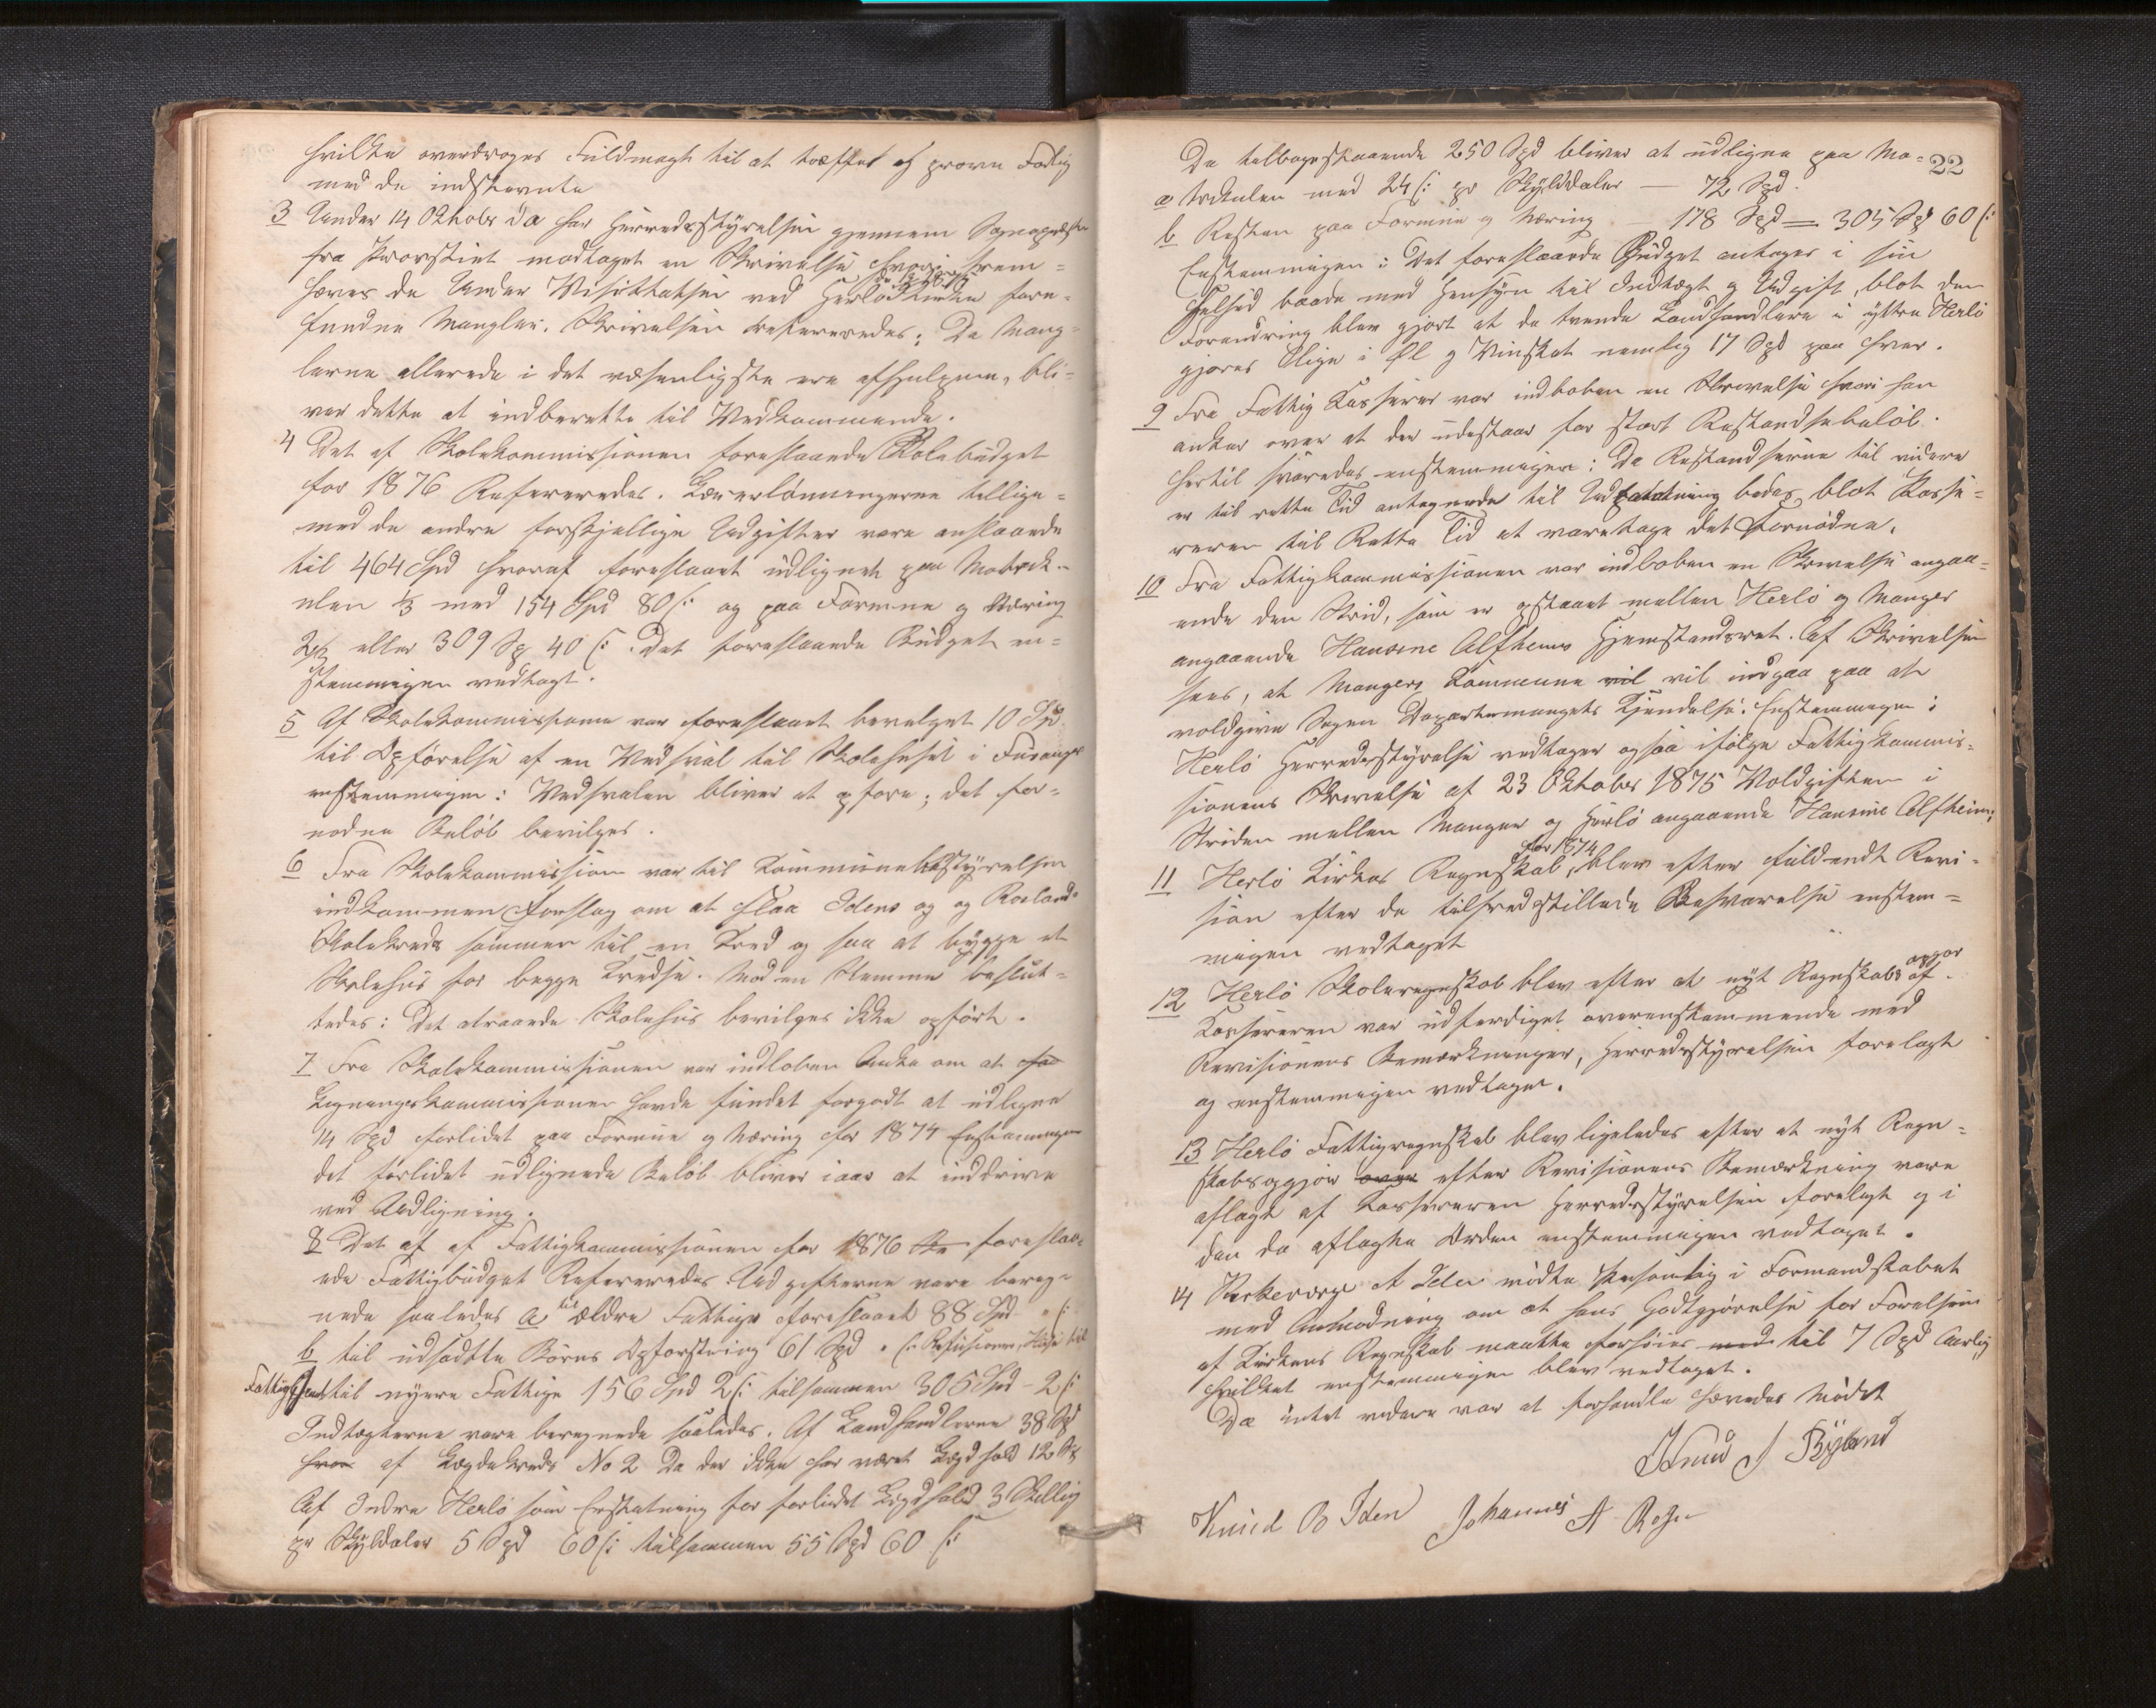 hvilke overdroges Fuldmagt til at træffes og prøve Forlig
med de indstevnte
3 Under 14 Oktobr da har Herredsstyrelsen gjennem Sognepresten
fra Provstiet modtaget en Skrivelse, hvori frem=
hæves de Under Visittatsen ved Herlø Kirke fore=
fundne Mangler. Skrivelsen refereredes: Da Mang=
lerne allerede i det væsenligste ere afhjulpne, bli=
ver dette at indberette til Vedkommende.
4 Det af Skolekommissionen foreslaaede Skolebudget
for 1876 Refereredes. Lærerlønningerne tillige=
med de andre forskjellige Udgifter vare anslaaede
til 464 Spd hvoraf foreslaaet udlignet paa Matrik-
ulen 1/3 med 154 Spd 80 s: og paa Formue og Næring
2/3 eller 309 Sp 40 s: Det foreslaaede Budget en=
stemmigen vedtagt.
5 Af Skolekommissionen var foreslaaet bevilget 10 Spd.
til Opførelse af en Vedsval til Skolehuset i Fusanger
enstemmigen: Vedsvalen bliver at opføre; det for=
nødne Beløb bevilges.
6 Fra Skolekommission var til Kommunebestyrelsen
indkommen Forslag om at slaa Idens og og Rosland
Skolekreds sammen til en Kred og saa at bygge et
Skolehus for begge Kredse. Mod en Stemme beslut=
tedes: Det attraaede Skolehus bevilges ikke opført.
7 Fra Skolekommissionen var indløben Anke om at
Ligningskommissionen havde fundet forgodt at udligne
14 Spd forlidet paa Formue og Næring for 1874 Enstemmigen
det forlidet udlignede Beløb bliver iaar at inddrive
ved Udligning.
8 Det af af Fattigkommissionen for 1876 foreslaa=
ede Fattigbudget Refereredes. Udgifterne vare bereg=
nede saaledes a til ældre Fattige foreslaaet 88 Spd " s:
b til udsadtte Børns Opfostring 61 Spd " s: Refusioner,
til nyere Fattige 156 Spd 2 s: tilsammen 305 Spd - 2 s:
Indtægterne vare beregnede saaledes. Af Landhandlerne 38 Spd
af Lægdekreds No 2 Da der ikke har været Lægdhold 12 Sp
Af Indre Herlø som Erstatning for forlidet Lægdhold 3 Skilling
pr Skyldaler 5 Spd 60 s: tilsammen 55 Spd 60 s:
22
De tilbagestaaende 250 Spd bliver at udligne paa Ma=
a trikulen med 24 s: pr Skylddaler — 72 Spd.
b Resten paa Formue og Næring — 178 Spd = 305 Spd 60 s:
Enstemmigen: Det foreslaaede Budget antages i sin
Helhed baade med Hensyn til Indtægt og Udgift, blot den
Forandring blev gjort at de tvende Landhandlere i yttre Herlø
gjøres lige i Øl og Vinskat nemlig 17 Spd paa hver.
9 Fra Fattig Kasserer var indloben en Skrivelse hvori han
anker over at der udestaar for stort Restandsebeløb.
hertil svaredes enstemmigen: Da Restandserne til videre
er til rette Tid antegnede til Udpantning bedes blot Kasse=
reren til Rette Tid at varetage det Fornødne.
10 Fra Fattigkommissionen var indloben en Skrivelse angaa=
ende den Strid, som er opstaaet mellem Herlø og Manger
angaaende Hansine Alfheims Hjemstandsret. Af Skrivelsen
sees, at Mangers Kommune vil vil indgaa paa at
voldgive Sagen Departemangets Kjendelse. Enstemmigen:
Herlø Herredsstyrelse vedtager ogsaa ifølge Fattigkommis=
sionens Skrivelse af 23 Oktober 1875 Voldgiften i
Striden mellem Manger og Herlø angaaende Hansine Alfheim.
11 Herlø Kirkes Regnskab for 1874, blev efter fuldendt Revi=
sion efter de tilfredsstillede Besvarelse enstem=
migen vedtaget
12 Herlø Skoleregnskab blev efter at nyt Regnskabs opgjør af
Kassereren var udferdiget overenskommende med
Revisionens Bemærkninger, Herredsstyrelsen forelagt
og enstemmigen vedtaget.
13 Herlø Fattigregnskab blev ligeledes efter at nyt Regn=
skabsopgjør over efter Revisionens Bemærkning vare
aflagt af Kassereren Herredsstyrelsen forelagt og i
den da aflagte Orden enstemmigen vedtaget.
14 Kirkeverge A Iden mødte Personlig i Formandskabet
med Anmodning om at hans Godtgjørelse for Førelsen
af Kirkens Regnskab maatte forhøies med til 7 Spd Aarlig
hvilket enstemmigen blev vedtaget.
Da intet videre var at forhandle hævedes Mødet
Knud J Byland
Knud O Iden Johannes A